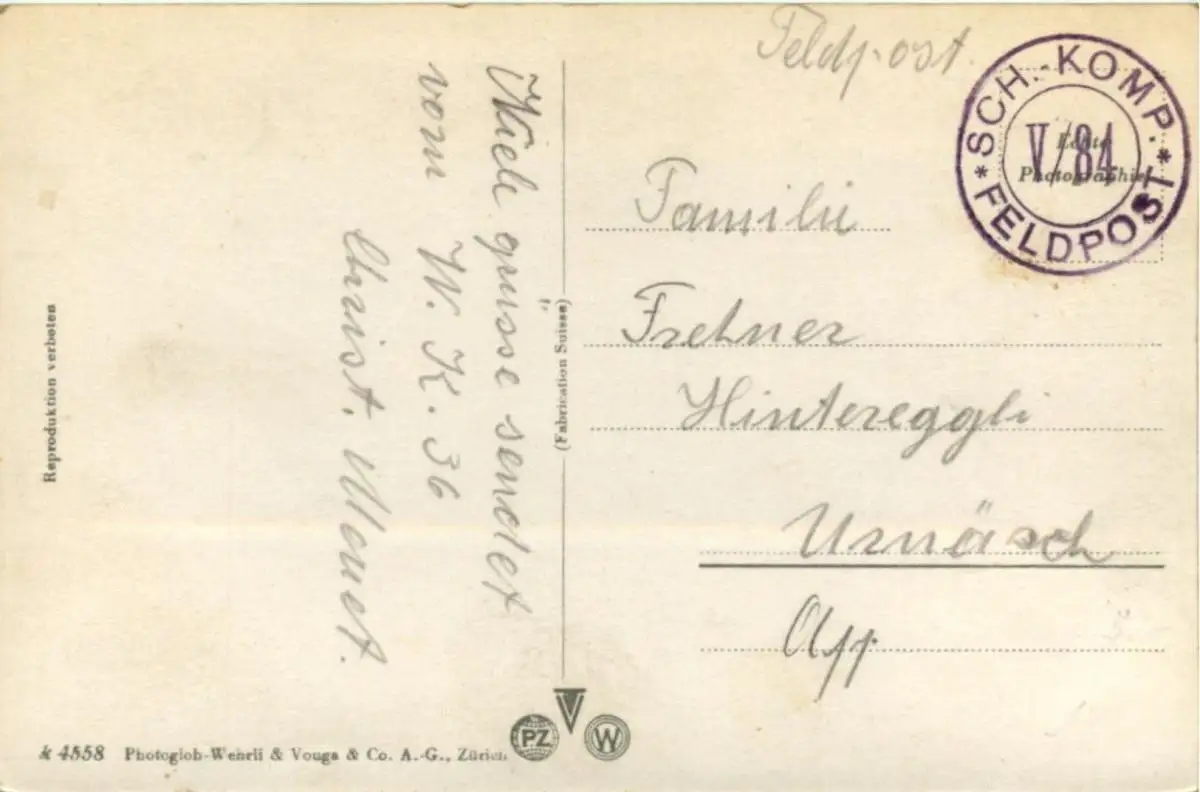 Feldpost.
SCH.-KOMP.
V/84
* FELDPOST *
Echte
Photographie
Familie
Frehner
Hintereggli
Urnäsch
App
grüsse sendet
vom W. K. 36
Christ. Menet.
(Fabrication Suisse)
Reproduktion verboten
k 4558 Photoglob-Wehrli & Vouga & Co. A.-G., Zürich
PZ
V
W